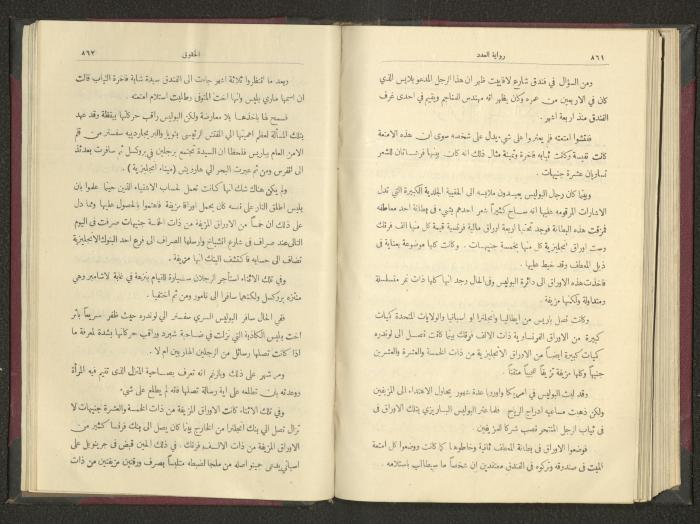 ٨٦٦
رواية العدد
ومن السؤال في فندق شارع لافاييت ظهر ان هذا الرجل المدعو بليس الذي
كان في الاربعين من عمره وكان يظهر انه مهندس للمناجم ويقيم في احدى غرف
الفندق منذ اربعة اشهر.
ففتشوا امتعته فلم يعثروا على شيء يدل على شخصه سوى ان هذه الامتعة
كانت نفيسة وكانت ثيابه فاخرة وثمينة مثال ذلك انه كان بينها فرشاتان للشعر
تساويان عشرة جنيهات.
وبينا كان رجال البوليس يعيدون ملابسه الى الحقيبة الجلدية الكبيرة التي تدل
الاشارات المرقومة عليها انه سـاح كثيراً شعر احدهم بشيء في بطانة احد معاطفه
فمزقت هذه البطانة فوجد تحتها اربعة اوراق مالية فرنسية قيمة كل منها الف فرنك
وست اوراق انجليزية كل منها بخمسة جنيهـات . وكانت كلها موضوعة بعناية في
ذيل المعطف وقد خيط عليها .
فاخذت هذه الاوراق الى دائرة البوليس وفي الحال وجد انها كلها ذات نمر متسلسلة
ومتداولة ولكنها مزيفة .
وكانت تصل باريس من ايطاليا وانجلترا او اسبانيا والولايات المتحدة كميات
كبيرة من الاوراق الفرنساوية ذات الالف فرنك بينا كانت تصل الى لوندره
كميات كبيرة ايضاً من الاوراق الانجليزية من ذات الخمسة والعشرة والعشرين
جنيهاً وكلها مزيفة تزيفاً عجيباً متقناً .
وقد لبث البوليس في اميريكا واوربا عدة شهور يحاول الاهتداء الى المزيفين
ولكن ذهبت مساعيه ادراج الرياح . فلما عثر البوليس الباريزي بتلك الاوراق في
في ثياب الرجل المنتحر نصب شركا للمزيفين .
فوضعوا الاوراق في بطانة المعطف ثانية وخاطوها كما كانت ووضعوا كل امتعة
الميت في صندوقه وتركوه في الفندق معتقدين ان شخصاً ما سيطالب باستلامه .
الحقوق
٨٦٧
وبعد ما انتظروا ثلاثة اشهر جاءت الى الفندق سيدة شابة فاخرة الثياب قالت
ان اسمها ماري بليس وانها اخت المتوفى وطالبت استلام امتعته .
فسمح لها باخذها بلا معارضة ولكن البوليس راقب حركاتها بيقظة وقد عهد
بتلك المسألة لعظم اهميتها الى المفتش
الامن العام بباريس فلاحظا ان السيدة تجتمع برجلين في بروكسل ثم سافرت بعدئذ
الى انفرس ومن ثم عبرت البحر الى هارويتش (ميناء انجليزية) .
ولم يكن هناك شك انها كانت تعمل لحساب الاشقياء الذين حينما علموا بان
بليس اطلق النار على نفسه كان يحمل اوراقا مزيفة فاهتموا بالحصول عليها ومما دل
على ذلك ان خمساً من الاوراق المزيفة من ذات الخمسة جنيهات صرفت في اليوم
التالي عند صراف في شارع الشبايخ وارسلها الصراف الى فرع احد البنوك الانجليزية
تضاف الى حسابه فاكتشف البنك انها مزيفة .
وفي تلك الاثناء استأجر الرجلان سيارة للقيام بنزهة في غابة لاكامبر وهي
منتزه بروكسل ولكنهما سافرا الى نامور ومن ثم اختفيا .
ففي الحال سافر البوليس السري سفستر الى لوندره حيث ظفر سريعاً باثر
اخت بليس الكاذبة التي نزلت في ضـاحية شبرد وراقب حركاتها بشدة لمعرفة ما
اذا كانت تصلها رسائل من الرجلين الهاربين ام لا .
ومر شهر على ذلك وبالرغم انه تعرف بصاحبة المنزل الذي تقيم فيه المرأة
ووعدته بان تطلعه على اية رسالة تصلها فانه لم يطلع على شيء
وفي تلك الاثناء كانت الاوراق المزيفة من ذات الخمسة والعشرة جنيهات لا
تزال تصل الى بنك انجلترا من الخارج بينا كان يصل الى بنك فرنسا كثير من
الاوراق المزيفة من ذات الالف فرنك . في ذلك الحين قبض في جرينوبل على
اسباني يدعى جمينو اصله من ملجا لضبطه متلبساً بصرف ورقتين مزيفتين من ذات